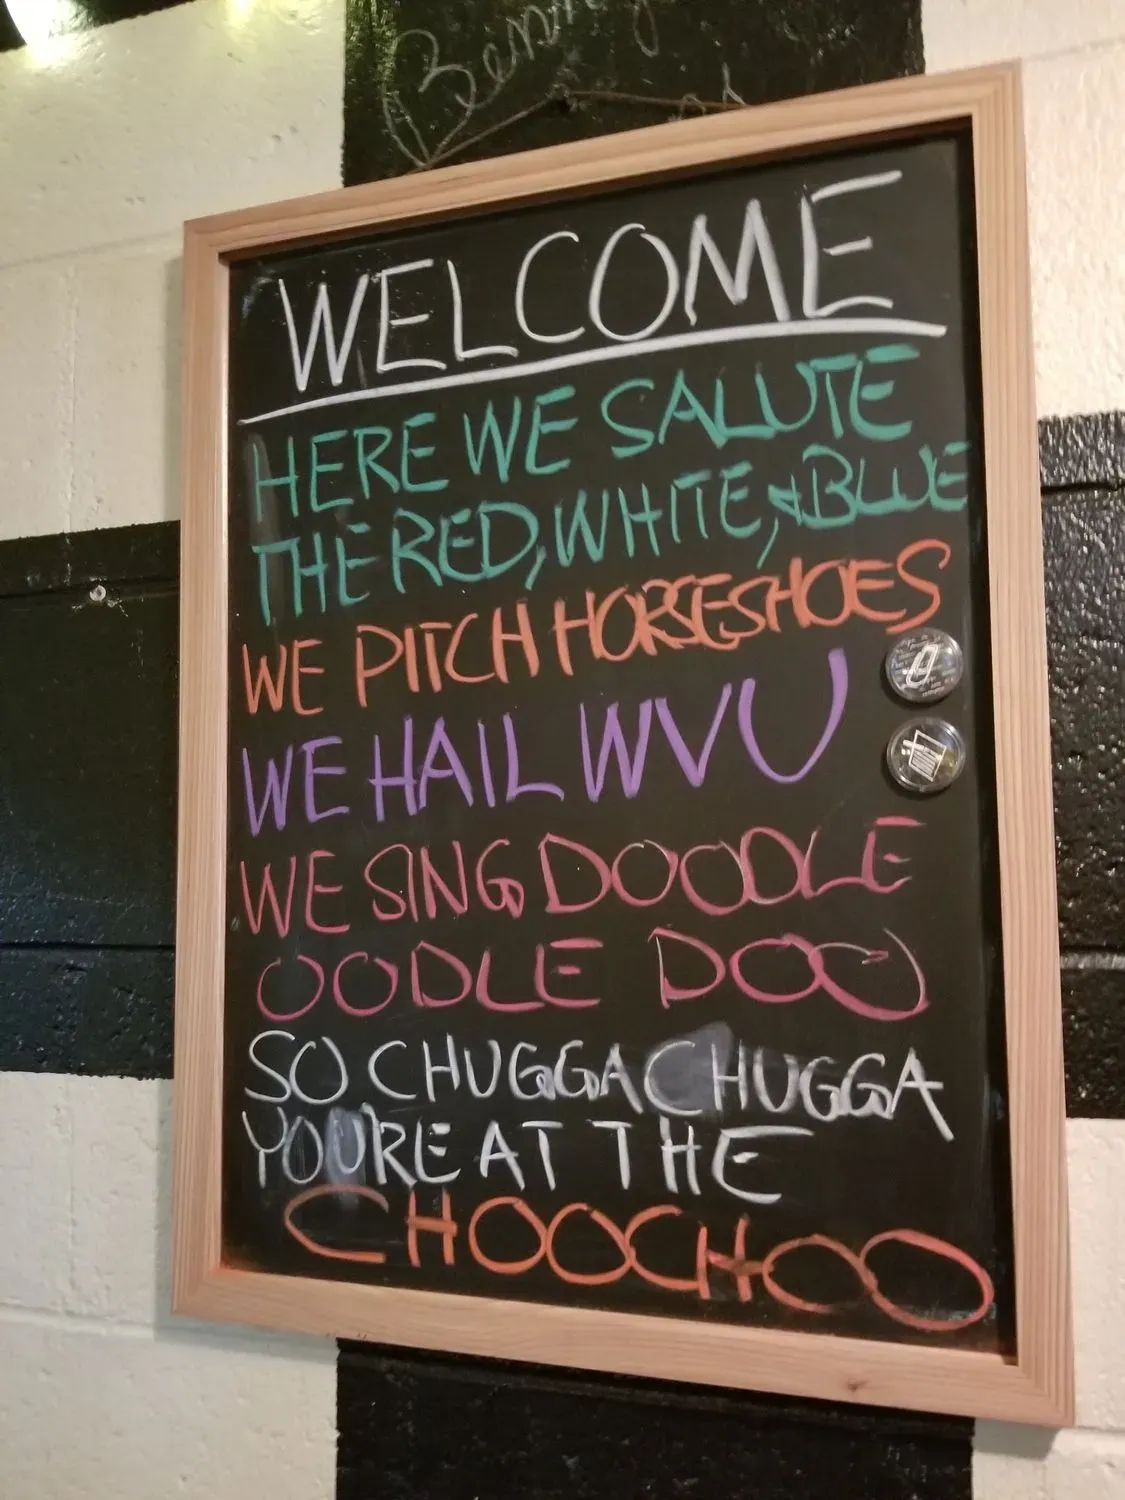 WELCOME
HERE WE SALUTE
THE RED, WHITE, & BLUE
WE PITCH HORSESHOES
WE HAIL WVU
WE SING DOODLE
OODLE DOO
SO CHUGGA CHUGGA
YOU'RE AT THE
CHOOCHOO